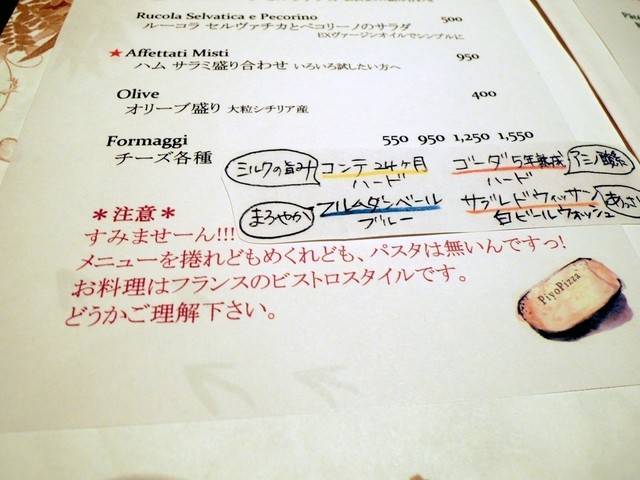 Rucola Selvatica e Pecorino 500
ルーコラ セルヴァチカとペコリーノのサラダ
EXヴァージンオイルでシンプルに
★Affettati Misti 950
ハム サラミ盛り合わせ いろいろ試したい方へ
Olive 400
オリーブ盛り 大粒シチリア産
Formaggi 550 950 1,250 1,550
チーズ各種
ミルクの旨み コンテ24ヶ月 ゴーダ5年熟成
ハード ハード
まろやか フルムダンベール サブルドウィッサン
ブルー 白ビールウォッシュ
＊注意＊
すみませーん!!!
メニューを捲れどもめくれども、パスタは無いんですっ!
お料理はフランスのビストロスタイルです。
どうかご理解下さい。
PiyoPizza